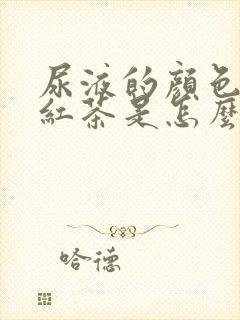 尿液的顏色
紅茶是怎麼
哈德